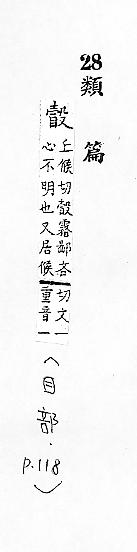 28 類篇
瞉
丘候切瞉霧鄙吝
心不明也又居候
切文一
重音一
(目部.
p.118)